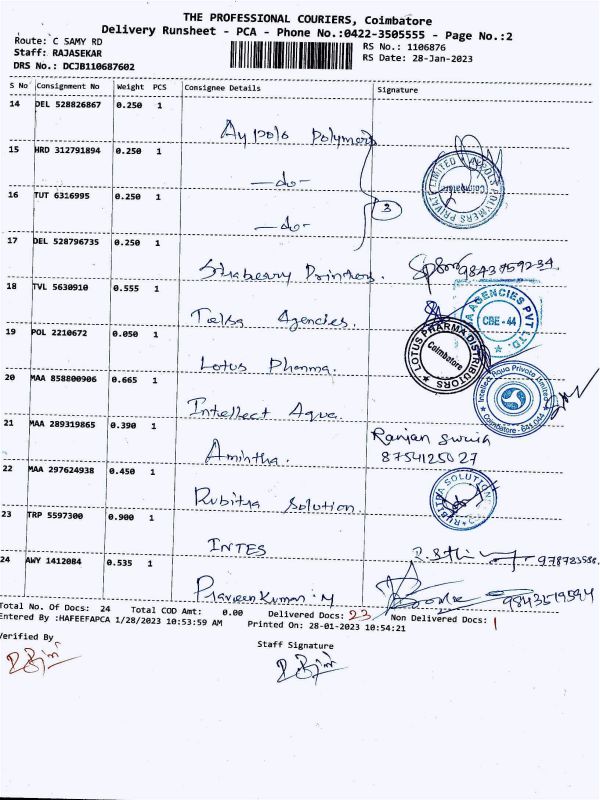 THE PROFESSIONAL COURIERS, Coimbatore
Delivery Runsheet - PCA - Phone No.:0422-3505555 - Page No.:2
Route: C SAMY RD
RS No.: 1106876
Staff: RAJASEKAR
RS Date: 28-Jan-2023
DRS No.: DCJB110687602
S No Consignment No Weight PCS Consignee Details Signature
14 DEL 528826867 0.250 1
Aypols Polymers
15 HRD 312791894 0.250 1
-do-
16 TUT 6316995 0.250 1
-do-
3
POLYMERS PRIVATE LIMITED
Coimbatore
17 DEL 528796735 0.250 1
Strabeary Printers.
18 TVL 5630910 0.555 1
Telsa Agencies.
AGENCIES PVT LTD.
CBE - 44
19 POL 2210672 0.050 1
Lotus Pharma.
LOTUS PHARMA DISTRIBUTORS
Coimbatore
20 MAA 858800906 0.665 1
Intellect Aqua.
Intellect Aqua Private Limited
Coimbatore - 641 044
21 MAA 289319865 0.390 1
Amintha.
Ranjan
8754125027
22 MAA 297624938 0.450 1
Rubitha Solution.
SOLUTION
23 TRP 5597300 0.900 1
INTES
24 AWY 1412084 0.535 1
Praveen Kumar.M
9843519594
Total No. Of Docs: 24 Total COD Amt: 0.00 Delivered Docs: 23 Non Delivered Docs: 1
Entered By :HAFEEFAPCA 1/28/2023 10:53:59 AM Printed On: 28-01-2023 10:54:21
Verified By
Staff Signature